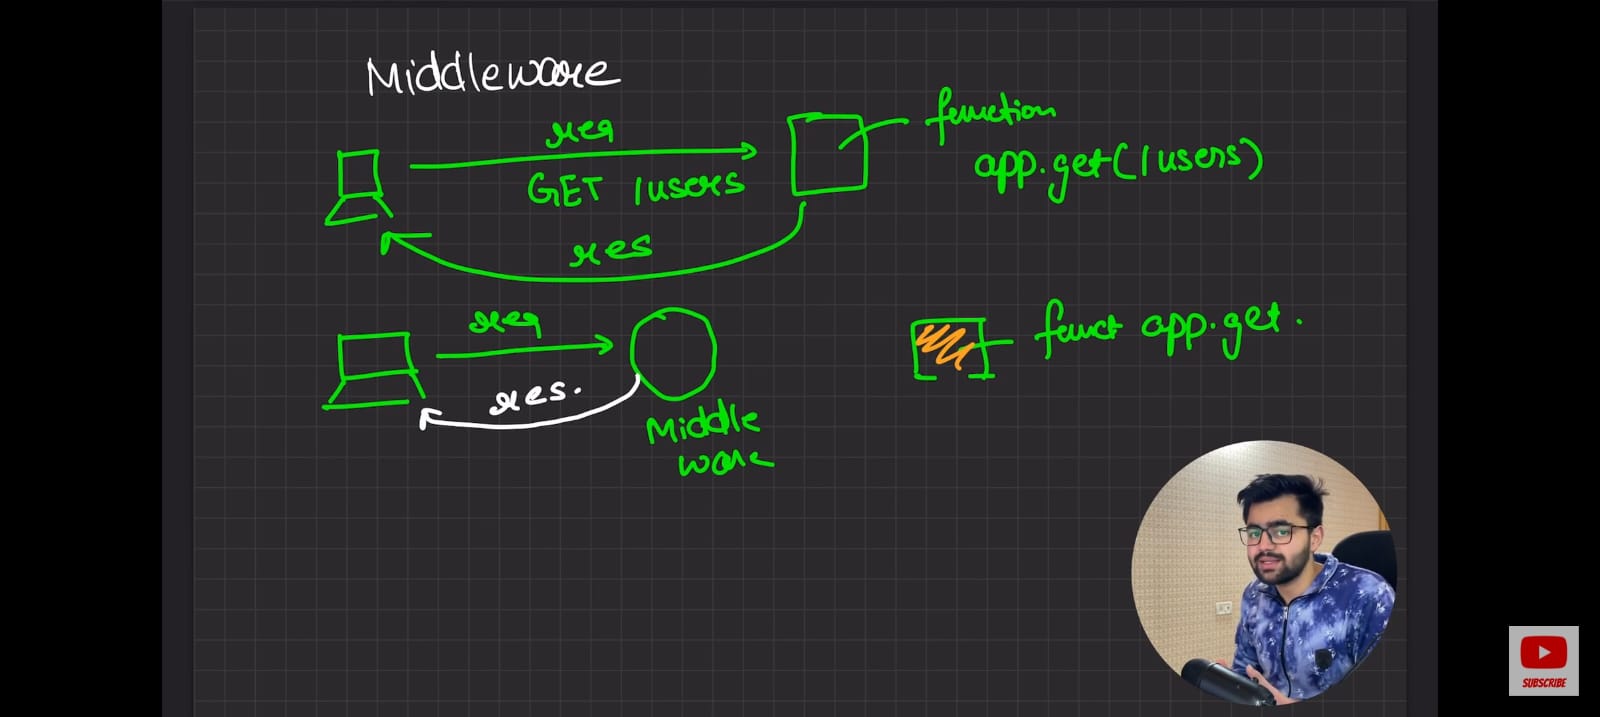 Middleware
req
GET /users
res
function
app.get(/users)
req
res.
Middle
ware
funct app.get.
SUBSCRIBE